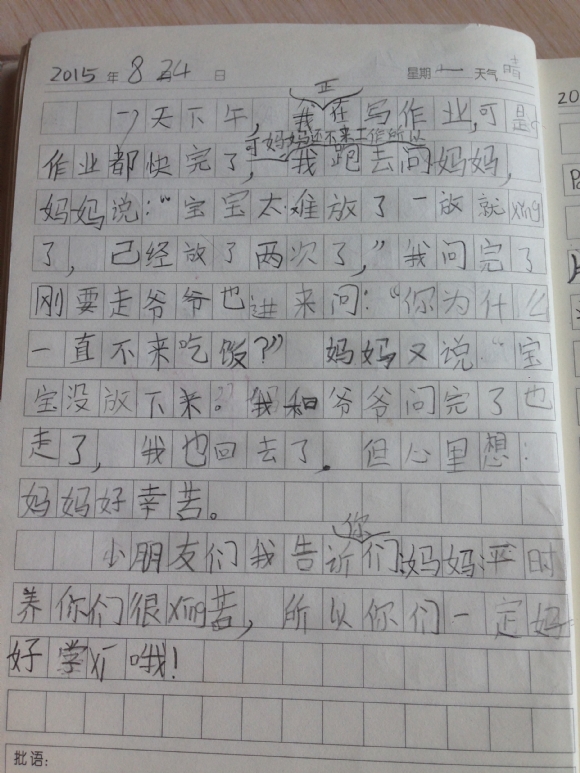 2015年8 24日 星期一 天气晴
正
一天下午，我在写作业，可是
可妈妈还不来工作所以
作业都快完了，我跑去问妈妈，
妈妈说：“宝宝太难放了一放就xing
了，已经放了两次了，”我问完了
刚要走爷爷也进来问：“你为什么
一直不来吃饭？” 妈妈又说“宝
宝没放下来。”我和爷爷问完了也
走了，我也回去了。但心里想：
妈妈好幸苦。
你
小朋友们我告诉们妈妈平时
养你们很xing苦，所以你们一定
好学习哦！
20
批语：